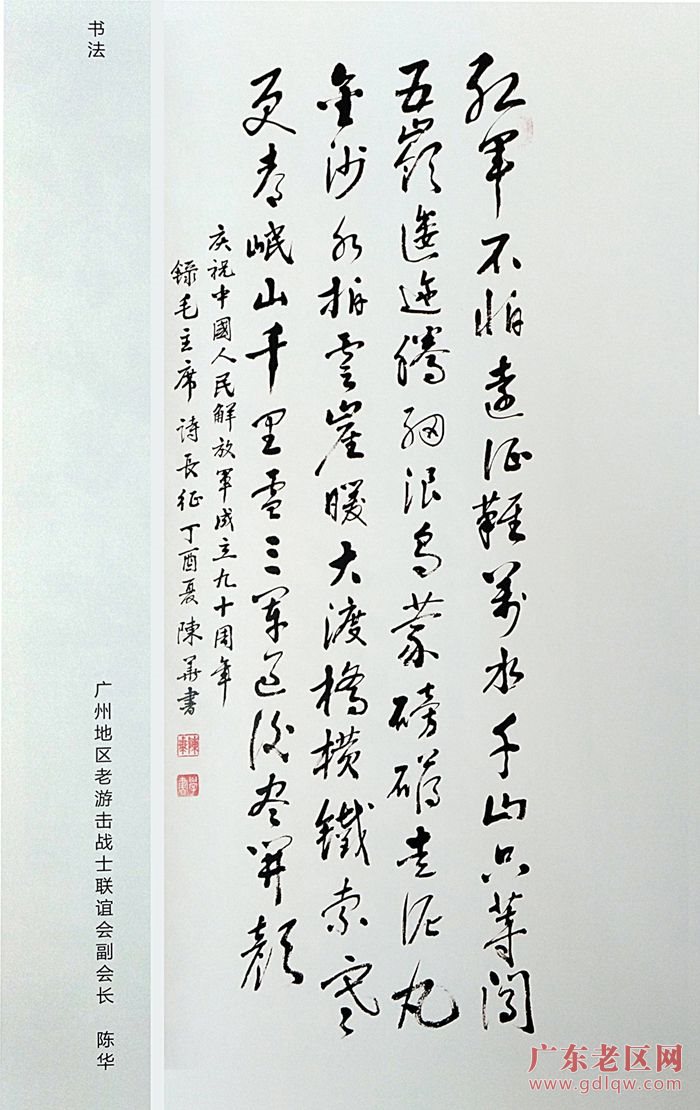 红軍不怕遠征難萬水千山只等闲
五嶺逶迤腾細浪烏蒙磅礴走泥丸
金沙水拍雲崖暖大渡橋横鐵索寒
更喜岷山千里雪三軍过後尽開颜
庆祝中國人民解放軍成立九十周年
録毛主席詩長征丁酉夏陳華書
书法
广州地区老游击战士联谊会副会长 陈华
广东老区网
www.gdlqw.com